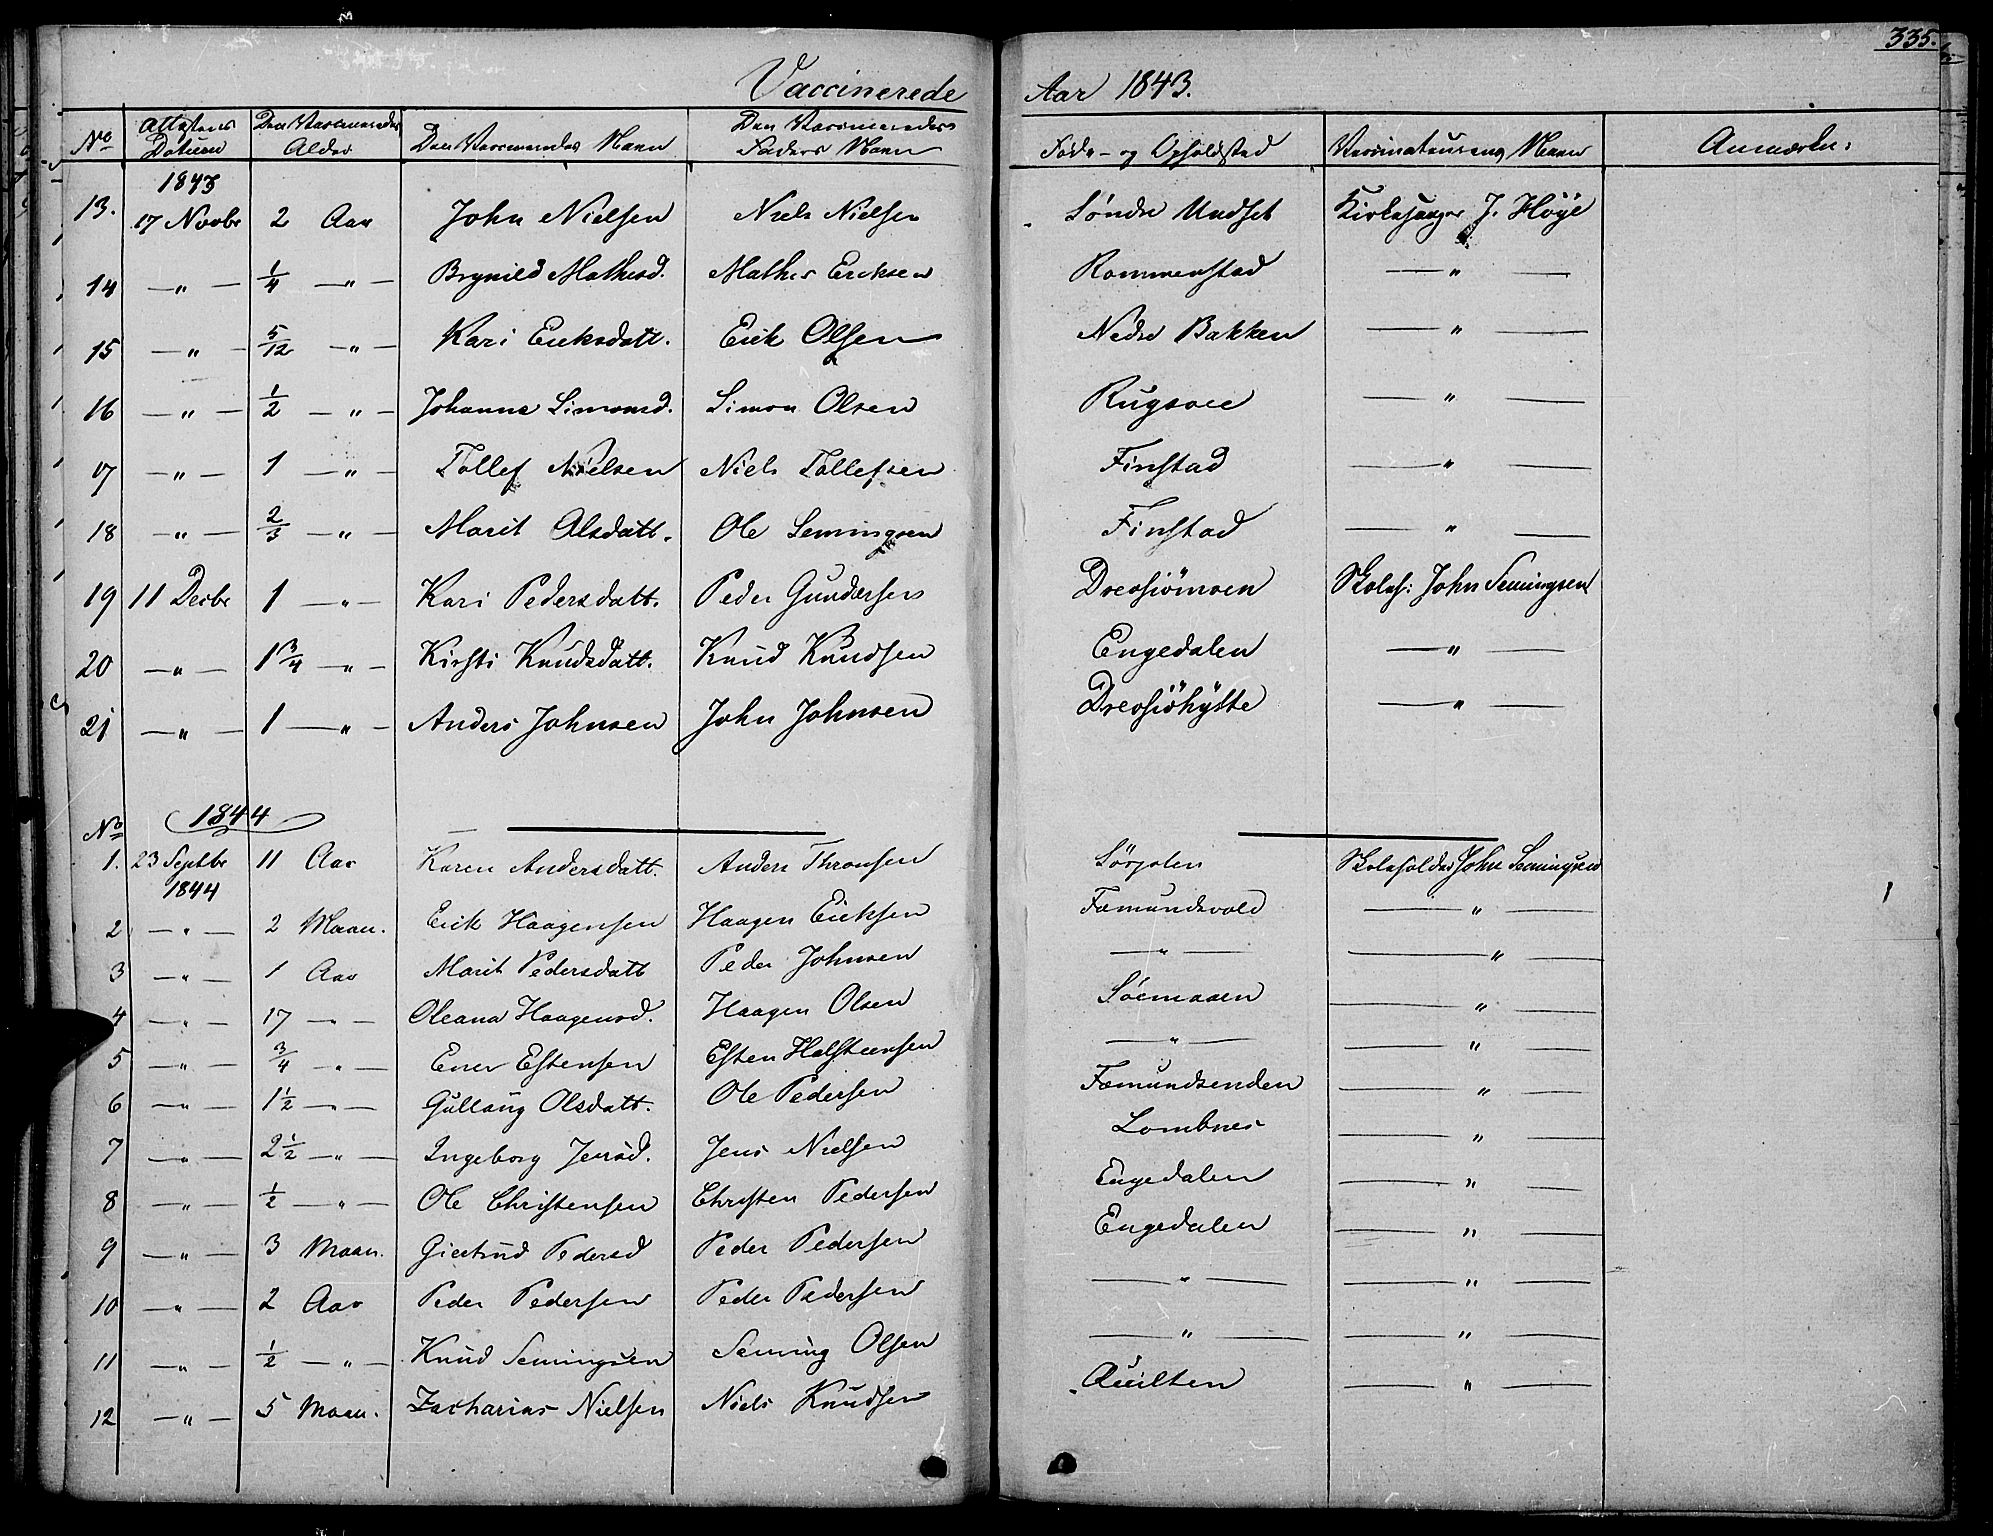 335.
Vaccinerede Aar 1843.
No | Attestens Datum | Den Vaccineredes Alder | Den Vaccineredes Navn | Den Vaccineredes Faders Navn | Føde- og Opholdsted | Vaccinateurens Navn | Anmærkn:
1843
13. | 17 Novbr | 2 Aar | John Nielsen | Niels Nielsen | Søndre Undset | Kirkesanger J. Høye
14 | —〃— | 1/4 —〃— | Brynild Mathisd. | Mathis Ericksen | Rommenstad | —〃—
15 | —〃— | 5/12 —〃— | Kari Ericksdatt. | Erick Olsen | Nedre Bakken | —〃—
16 | —〃— | 1/2 —〃— | Johanne Simonsd. | Simon Olsen | Rugsvee | —〃—
17 | —〃— | 1 —〃— | Tollef Nielsen | Niels Tollefsen | Finstad | —〃—
18 | —〃— | 2/3 —〃— | Marit Olsdatt. | Ole Semingsen | Finstad | —〃—
19 | 11 Decbr | 1 —〃— | Kari Pedersdatt. | Peder Gundersen | Drevsiömoen | Skoleh: John Semingsen
20 | —〃— | 1 3/4 —〃— | Kirsti Knudsdatt. | Knud Knudsen | Engedalen | —〃—
21 | —〃— | 1 —〃— | Anders Johnsen | John Johnsen | Drevsiöhytte | —〃—
No 1844
1. | 23 Septbr 1844 | 11 Aar | Karen Andersdatt. | Anders Thronsen | Sörjolen | Skoleholder John Semingsen
2 | —〃— | 2 Maan. | Erick Haagensen | Haagen Ericksen | Fæmundsvold | —〃—
3 | —〃— | 1 Aar | Marit Pedersdatt | Peder Johnsen | —〃— | —〃—
4 | —〃— | 17 —〃— | Oleana Haagensd. | Haagen Olsen | Söemoen | —〃—
5 | —〃— | 3/4 —〃— | Ener Estensen | Esten Halsteensen | —〃— | —〃—
6 | —〃— | 1 1/2 —〃— | Gullaug Olsdatt. | Ole Pedersen | Fæmundsenden | —〃—
7 | —〃— | 2 1/2 —〃— | Ingeborg Jensd. | Jens Nielsen | Lombnes | —〃—
8 | —〃— | 1/2 —〃— | Ole Christensen | Christen Pedersen | Engedalen | —〃—
9 | —〃— | 3 Maan. | Giertrud Pedersd | Peder Pedersen | Engedalen | —〃—
10 | —〃— | 2 Aar | Peder Pedersen | Peder Pedersen | —〃— | —〃—
11 | —〃— | 1/2 —〃— | Knud Semingsen | Seming Olsen | —〃— | —〃—
12 | —〃— | 5 Maan. | Zacharias Nielsen | Niels Knudsen | Qvilten | —〃—